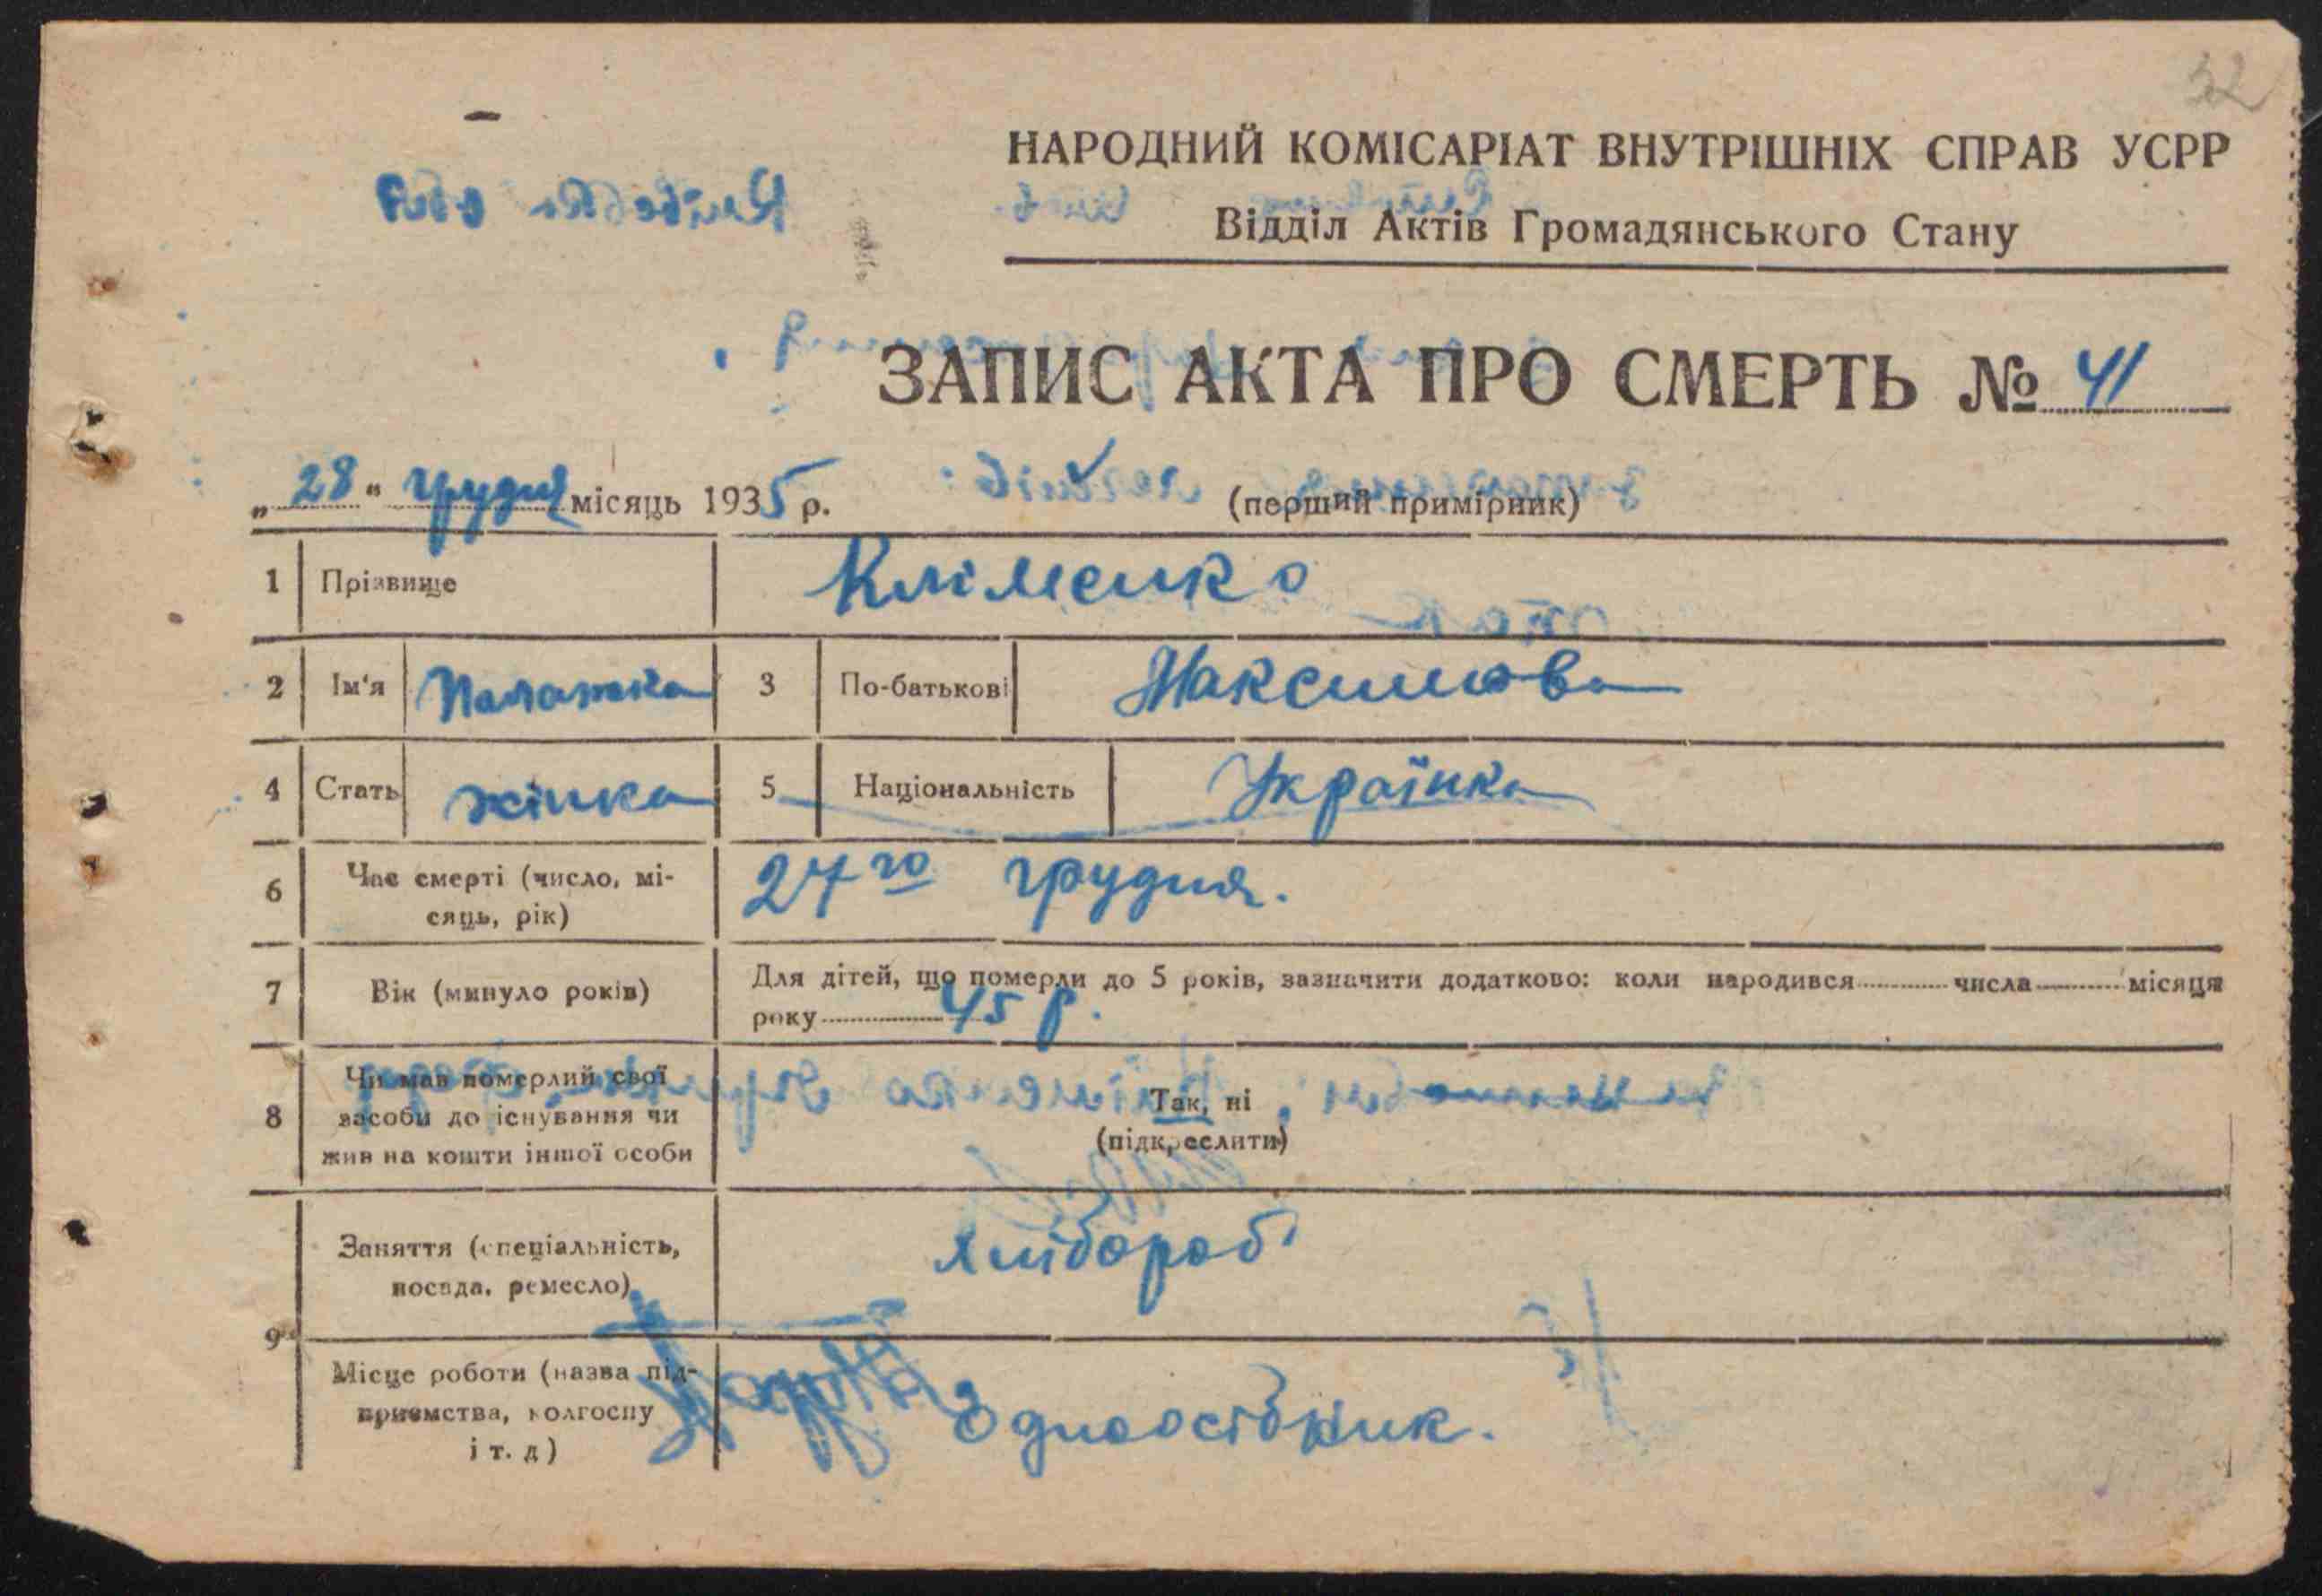 32
НАРОДНИЙ КОМІСАРІАТ ВНУТРІШНІХ СПРАВ УСРР
Відділ Актів Громадянського Стану
ЗАПИС АКТА ПРО СМЕРТЬ № 41
„ 28 " грудня місяць 1935 р. (перший примірник)
1 Прізвище Кліменко
2 Ім'я Палажка 3 По-батькові Максимова
4 Стать жінка 5 Національність Українка
6 Час смерті (число, мі-
сяць, рік) 27го грудня.
7 Вік (минуло років) Для дітей, що померли до 5 років, зазначити додатково: коли народився числа місяця
року 45 р.
8 Чи мав померлий свої
засоби до існування чи
жив на кошти іншої особи
Так, ні
(підкреслити)
9 Заняття (спеціальність,
посада, ремесло) хлібороб
Місце роботи (назва під-
приємства, колгоспу
і т. д) Одноосібник.